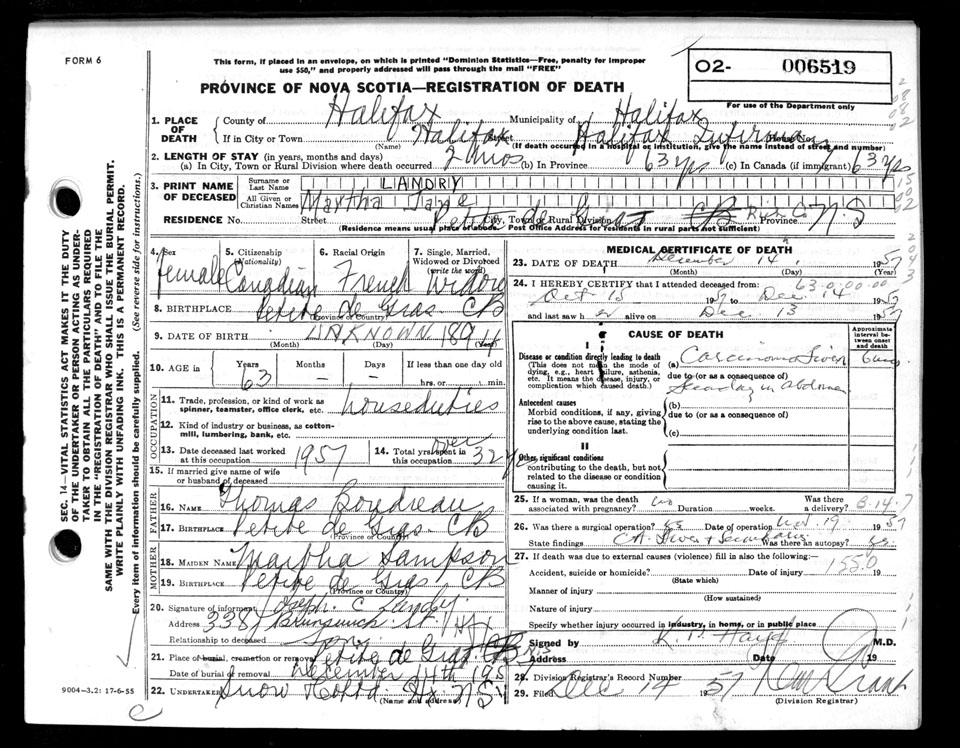 FORM 6
This form, if placed in an envelope, on which is printed "Dominion Statistics—Free, penalty for improper
use $50," and properly addressed will pass through the mail "FREE"
02- 006519
For use of the Department only
PROVINCE OF NOVA SCOTIA—REGISTRATION OF DEATH
1. PLACE OF DEATH
County of Halifax Municipality of Halifax
If in City or Town Halifax Street Halifax Infirmary House No.
(Name) (If death occurred in a hospital or institution, give the name instead of street and number)
2. LENGTH OF STAY (in years, months and days)
(a) In City, Town or Rural Division where death occurred 2 mos (b) In Province 63 yrs (c) In Canada (if immigrant) 63 yrs
3. PRINT NAME OF DECEASED
Surname or Last Name LANDRY
All Given or Christian Names Martha Jane
RESIDENCE No. Street Petit de Grat City, Town or Rural Division CB Province N.S
(Residence means usual place of abode. Post Office Address for residents in rural parts not sufficient)
4. Sex female
5. Citizenship (Nationality) Canadian
6. Racial Origin French
7. Single, Married, Widowed or Divorced (write the word) Widow
8. BIRTHPLACE Petite de Gras CB
(Province or Country)
9. DATE OF BIRTH UNKNOWN 1894
(Month) (Day)
10. AGE in Years 63 Months — Days — If less than one day old
hrs. or min.
OCCUPATION
11. Trade, profession, or kind of work as
spinner, teamster, office clerk, etc. houseduties
12. Kind of industry or business, as cotton-
mill, lumbering, bank, etc.
13. Date deceased last worked
at this occupation 1957
14. Total yrs. spent in
this occupation over 32 yrs
15. If married give name of wife
or husband of deceased
FATHER
16. NAME Thomas Boudreau
17. BIRTHPLACE Petite de Gras CB
(Province or Country)
MOTHER
18. MAIDEN NAME Martha Sampson
19. BIRTHPLACE Petite de Gras CB
(Province or Country)
20. Signature of informant Joseph C Landry
Address 338 Brunswick St. Hfx
Relationship to deceased Son
21. Place of burial, cremation or removal Petite de Gras CB
Date of burial or removal December 1957
22. UNDERTAKER Snow Hfx N.S
(Name and address)
MEDICAL CERTIFICATE OF DEATH
23. DATE OF DEATH December 14, 1957
(Month) (Day) (Year)
24. I HEREBY CERTIFY that I attended deceased from: 63-0.00.00
Oct 15 1957 Dec 14 1957
and last saw her alive on Dec 13 1957
I
CAUSE OF DEATH
Approximate interval between onset and death
Disease or condition directly leading to death
(This does not mean the mode of
dying, e.g., heart failure, asthenia,
etc. It means the disease, injury, or
complication which caused death.)
(a) Carcinoma Liver
due to (or as a consequence of)
Antecedent causes
Morbid conditions, if any, giving
rise to the above cause, stating the
underlying condition last.
(b)
due to (or as a consequence of)
(c)
II
Other significant conditions
contributing to the death, but not
related to the disease or condition
causing it.
25. If a woman, was the death
associated with pregnancy? no Duration weeks. Was there a delivery?
26. Was there a surgical operation? yes Date of operation Nov 19 1957
State findings Was there an autopsy?
27. If death was due to external causes (violence) fill in also the following:—
Accident, suicide or homicide? Date of injury 19
(State which)
155.0
Manner of injury
(How sustained)
Nature of injury
Specify whether injury occurred in industry, in home, or in public place
Signed by M.D.
Address Date 19
28. Division Registrar's Record Number
29. Filed Dec 14 1957
(Division Registrar)
SEC. 14—VITAL STATISTICS ACT MAKES IT THE DUTY
OF THE UNDERTAKER OR PERSON ACTING AS UNDER-
TAKER TO OBTAIN ALL THE PARTICULARS REQUIRED
IN THE "REGISTRATION OF DEATH" AND TO FILE THE
SAME WITH THE DIVISION REGISTRAR WHO SHALL ISSUE THE BURIAL PERMIT.
WRITE PLAINLY WITH UNFADING INK. THIS IS A PERMANENT RECORD.
Every item of information should be carefully supplied. (See reverse side for instructions.)
9004-3.2: 17-6-55